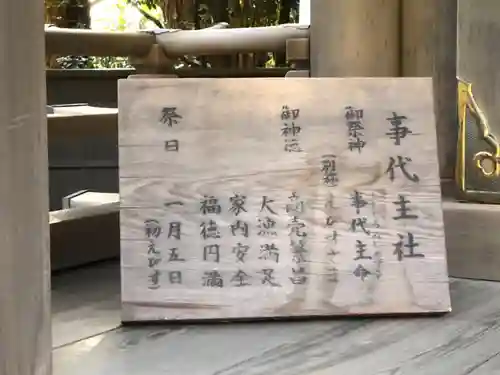 事代主社
御祭神
事代主命
（別称 えびす
御神徳
商売繁昌
大漁満足
家内安全
福徳円満
祭日
一月五日
（初えびす）